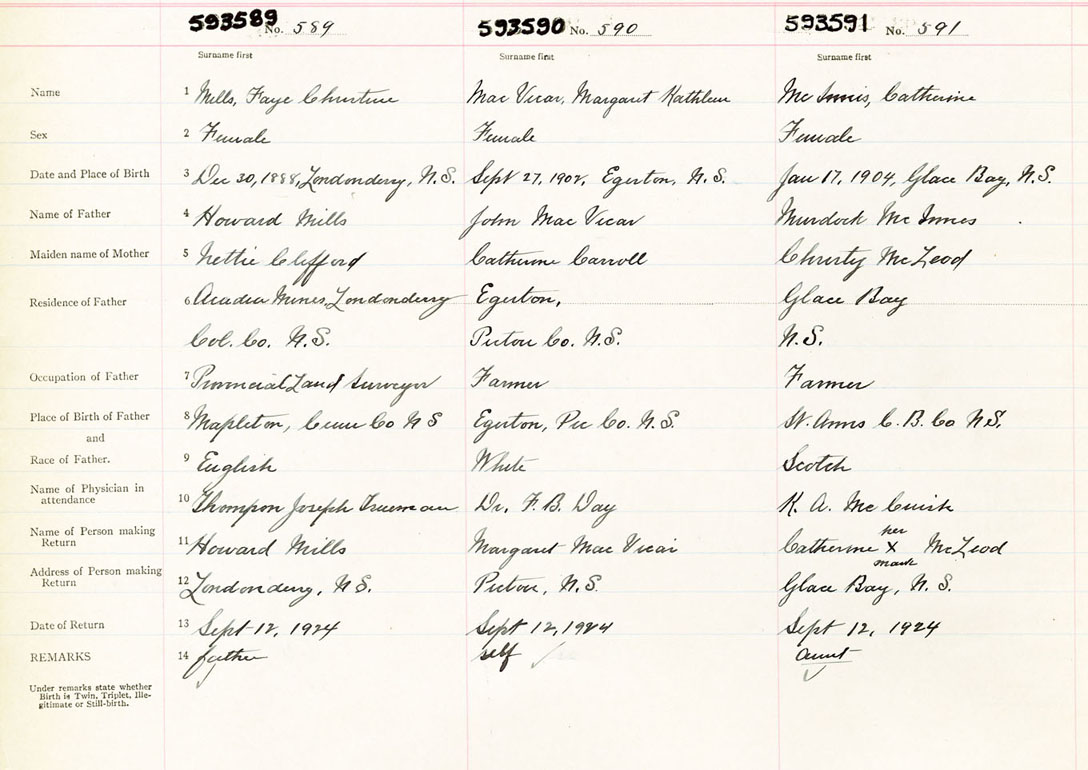 593589 No. 589 593590 No. 590 593591 No. 591
Surname first Surname first Surname first
Name 1 Mills, Faye Christine Mac Vicar, Margaret Kathleen Mc Innis, Catherine
Sex 2 Female Female Female
Date and Place of Birth 3 Dec 30, 1888, Londonderry, N.S. Sept 27, 1902, Egerton, N.S. Jan 17, 1904, Glace Bay, N.S.
Name of Father 4 Howard Mills John Mac Vicar Murdock Mc Innes
Maiden name of Mother 5 Nettie Clifford Catherine Carroll Christy McLeod
Residence of Father 6 Acadia Mines, Londonderry Egerton, Glace Bay
Col. Co. N.S. Pictou Co. N.S. N.S.
Occupation of Father 7 Provincial Land Surveyor Farmer Farmer
Place of Birth of Father 8 Mapleton, Cum Co N S Egerton, Pic Co. N.S. St. Anns C.B. Co N.S.
and
Race of Father. 9 English White Scotch
Name of Physician in
attendance 10 Thompson Joseph Trueman Dr. F. B. Day K. A. Mc Cuish
Name of Person making her
Return 11 Howard Mills Margaret Mac Vicar Catherine X McLeod
mark
Address of Person making
Return 12 Londonderry, N.S. Pictou, N.S. Glace Bay, N.S.
Date of Return 13 Sept 12, 1924 Sept 12, 1924 Sept 12, 1924
REMARKS 14 father self aunt
Under remarks state whether
Birth is Twin, Triplet, Ille-
gitimate or Still-birth.